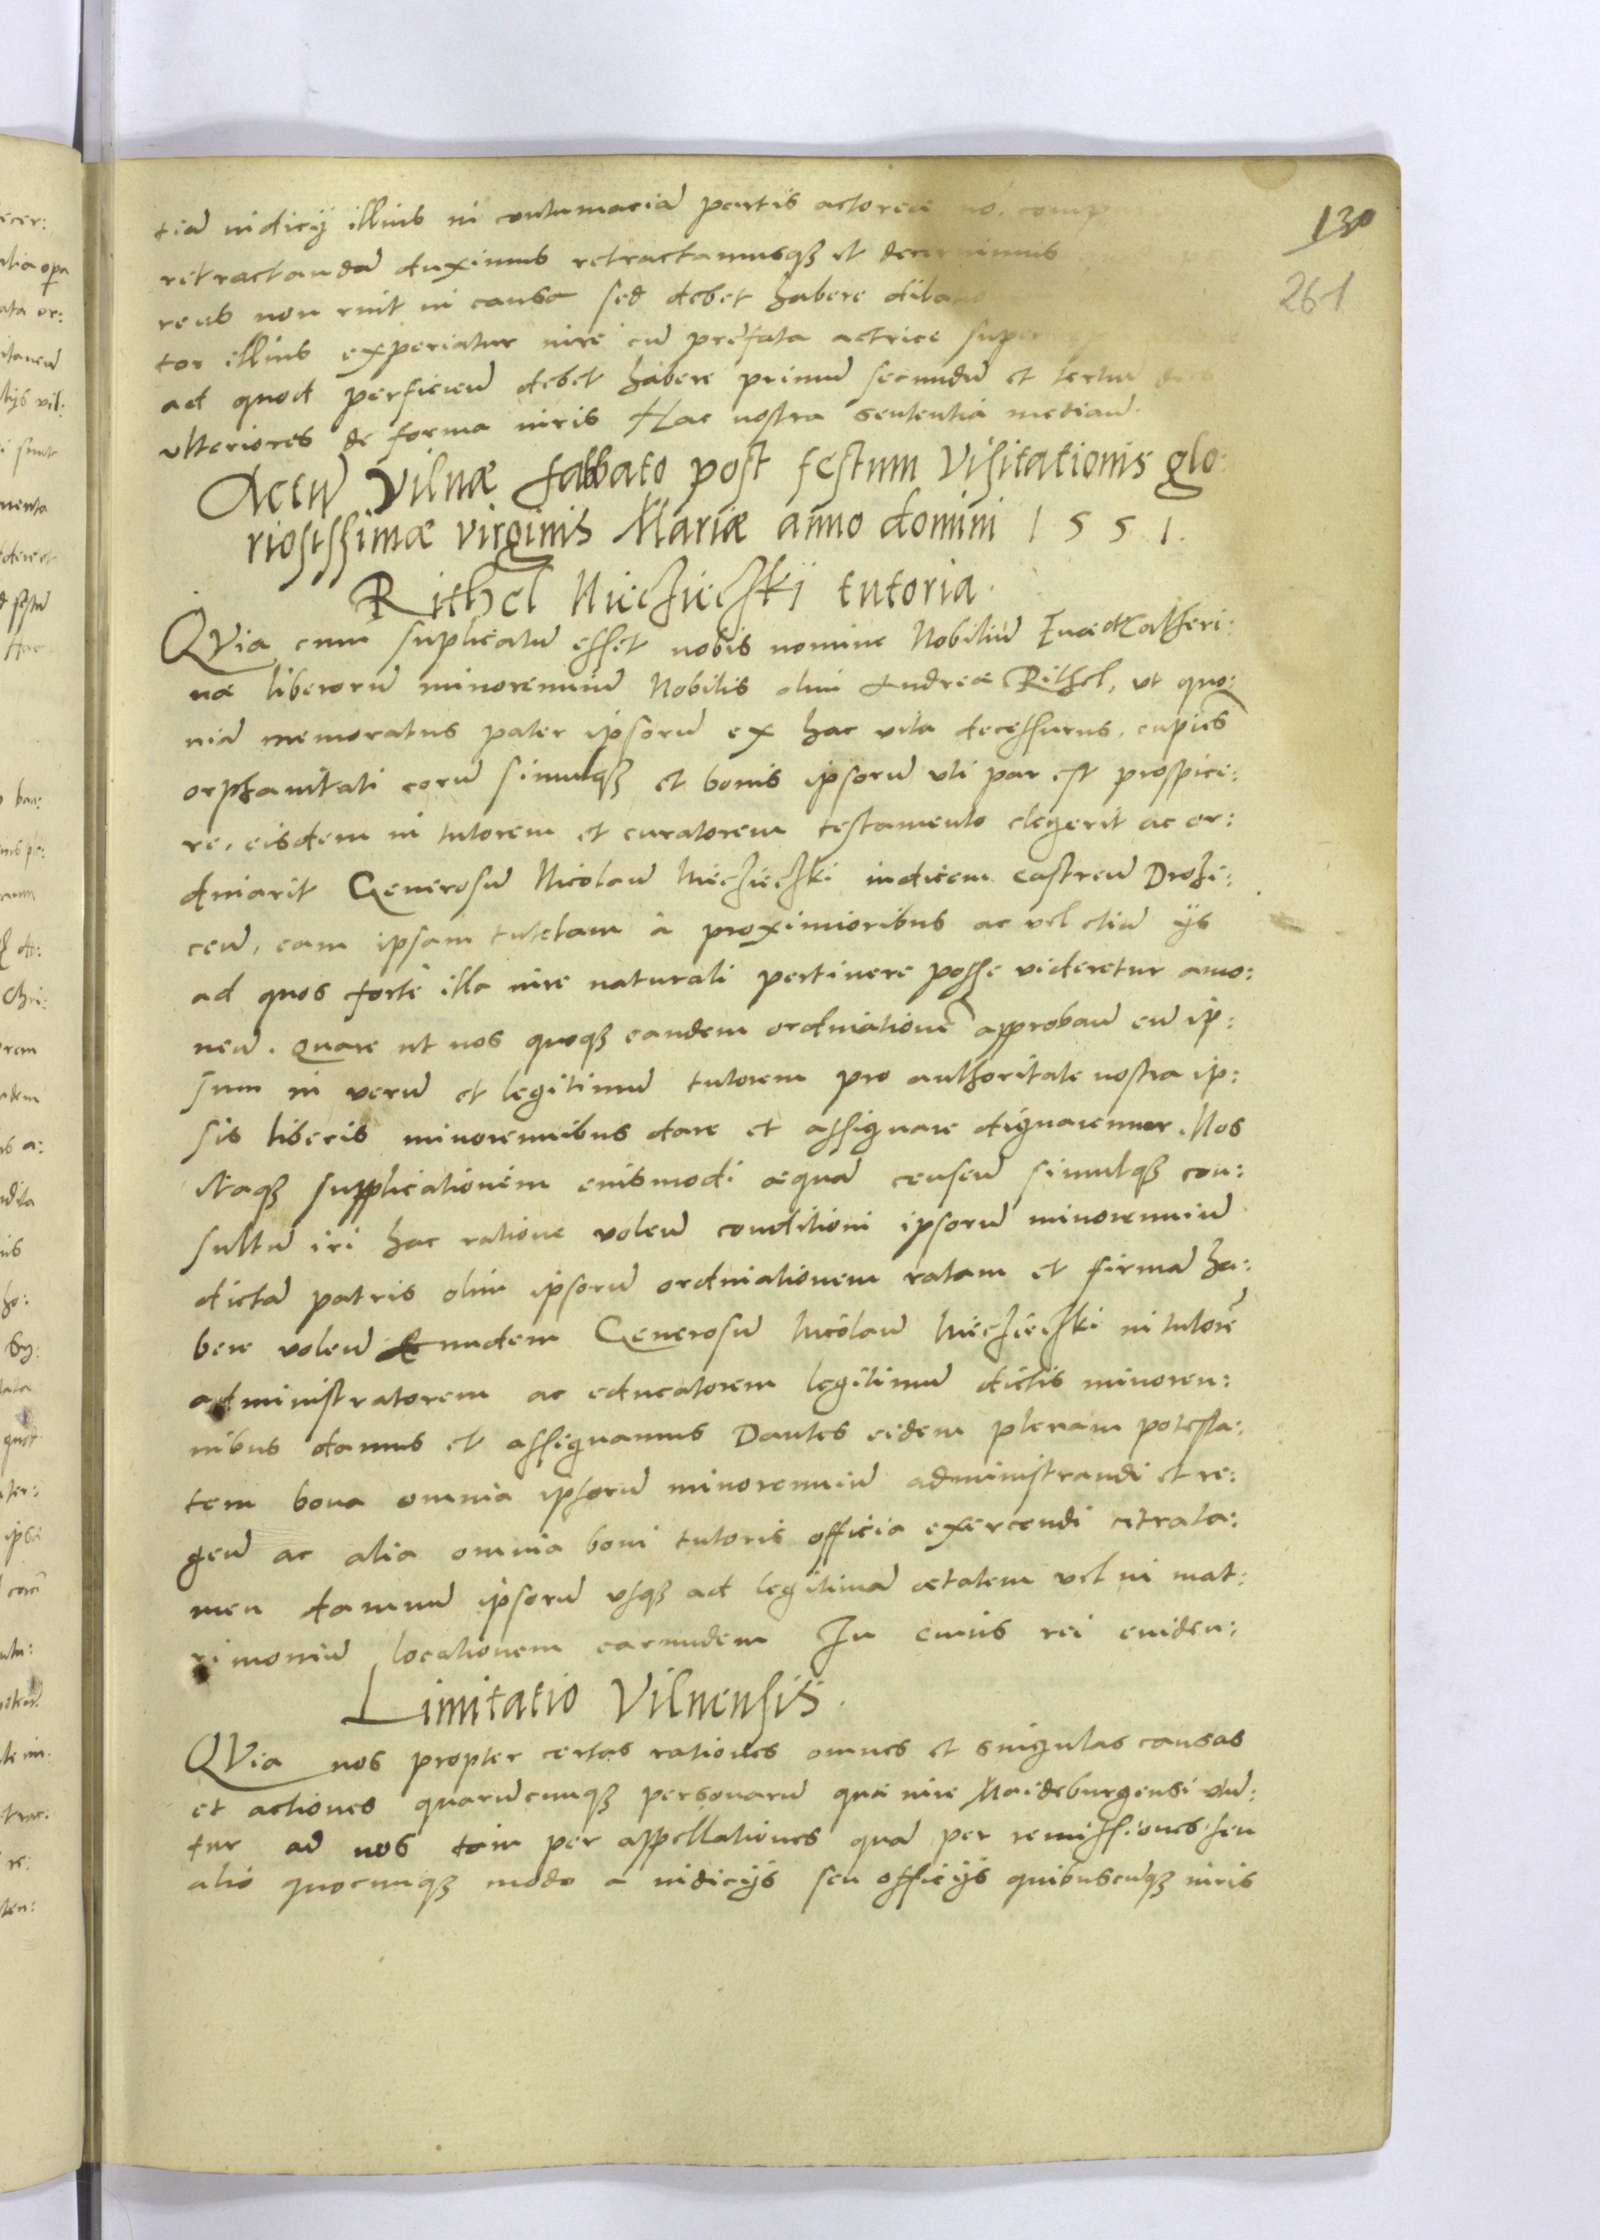 130
261
tiā iudicij illius in contumaciā partis actoreæ nō comp
retractandā duximus retractamusq3 et decernimus
reus non ruit in causa sed debet habere dila
tor illius experiatur iure cū prefata actrice super
ad quod perficiēū debet habere primū secundū et tertiū
ulteriores de forma iuris Hac nostra sententia mediaū.
Actū Vilnæ sabbato post festum Visitationis glo:
riosissimæ virginis Mariæ anno domini 1551.
Rithel Nieczieczkij tutoria.
QVia cum suplicatū esset nobis nomine Nobiliū Euæ et Catheri:
næ liberorū minorenniū Nobilis olim Andreæ Rithel, ut quo:
niā memoratus pater ipsorū ex hac vita decessurus, cupiēs
orphanitati eorū simulq3 et bonis ipsorū uti par est prospice:
re, eisdem in tutorem et curatorem testamento elegerit ac or:
dinarit Generosū Nicolaū Nieczieczki iudicem castreū Drohi:
ceū, eam ipsam tutelam à proximioribus ac vel etiā ijs
ad quos forte illa iure naturali pertinere posse videretur amo:
neū. Quare ut nos quoq3 eandem ordinationē approbaū eū ip:
sum in verū et legitimū tutorem pro authoritate nostra ip:
sis liberis minorennibus dare et assignare dignaremur. Nos
itaq3 supplicationem eiusmodi æquā censeū simulq3 con:
sultū iri hac ratione voleū conditioni ipsorū minorenniū
dictā patris olim ipsorū ordinationem ratam et firmā ha:
bere voleū Eundem Generosū Nicolaū Nieczieczki in tutorē
administratorem ac educatorem legitimū dictis minoren:
nibus damus et assignamus Dantes eidem plenam potesta:
tem bona omnia ipsorū minorenniū administrandi et re:
geū ac alia omnia boni tutoris officia exercendi citrata:
men damnū ipsorū usq3 ad legitimā ætatem vel in mat:
rimoniū locationem earundem In cuius rei eviden:
Limitatio Vilnensis.
QVia nos propter certas rationes omnes et singulas causas
et actiones quarūcunq3 personarū quæ iure Maideburgensi utū:
tur ad nos tam per appellationes quā per remissiones seu
alio quocunq3 modo a iudicijs seu officijs quibuscūq3 iuris